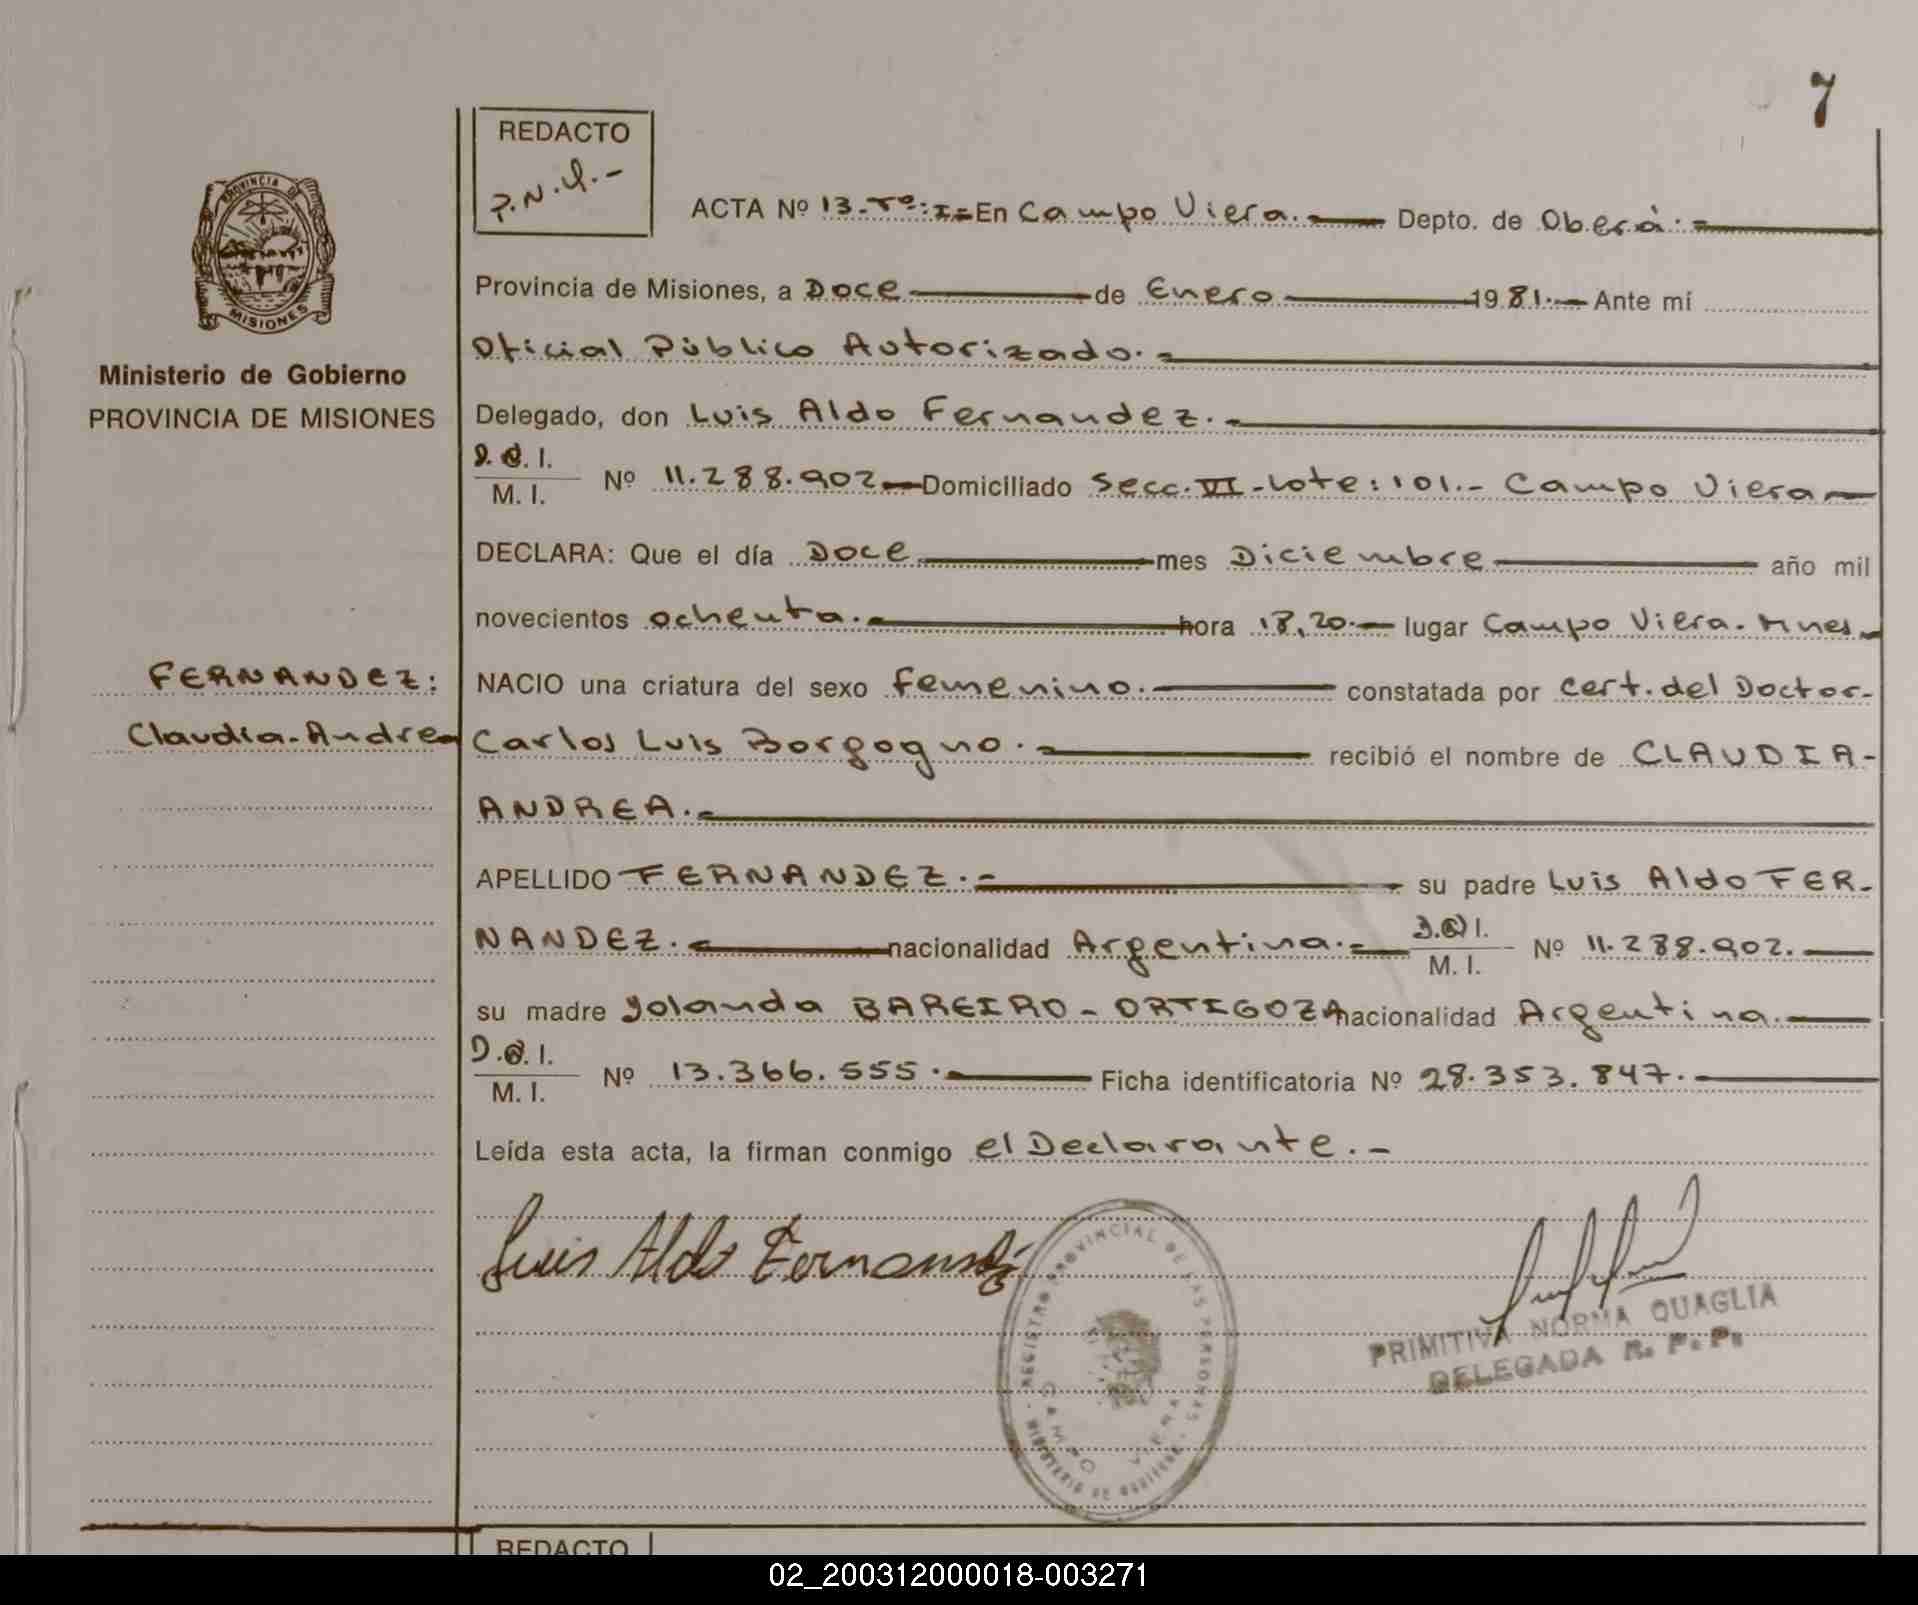 7
REDACTO
P.N.Q.-
ACTA Nº 13-Tº:I= En Campo Viera. Depto. de Oberá.
PROVINCIA DE
MISIONES
Provincia de Misiones, a Doce de Enero 1981.- Ante mí
Oficial Público Autorizado.-
Ministerio de Gobierno
PROVINCIA DE MISIONES
Delegado, don Luis Aldo Fernandez.-
D.N.I.
M. I. Nº 11.288.902 Domiciliado Secc. VI-Lote: 101.- Campo Viera
DECLARA: Que el día Doce mes Diciembre año mil
novecientos ochenta. hora 18,20.- lugar Campo Viera. Mnes.
FERNANDEZ: NACIO una criatura del sexo femenino. constatada por cert. del Doctor-
Claudia-Andrea Carlos Luis Borgogno. recibió el nombre de CLAUDIA-
ANDREA.-
APELLIDO FERNANDEZ.- su padre Luis Aldo FER-
NANDEZ. nacionalidad Argentina.- D.N.I.
M. I. Nº 11.288.902.
su madre Yolanda BAREIRO-ORTIGOZA nacionalidad Argentina.
D.N.I.
M. I. Nº 13.366.555. Ficha identificatoria Nº 28.353.847.
Leída esta acta, la firman conmigo el Declarante.-
Luis Aldo Fernandez
REGISTRO PROVINCIAL DE LAS PERSONAS
CAMPO VIERA
PRIMITIVA NORMA QUAGLIA
DELEGADA R. P. P.
REDACTO
02_200312000018-003271